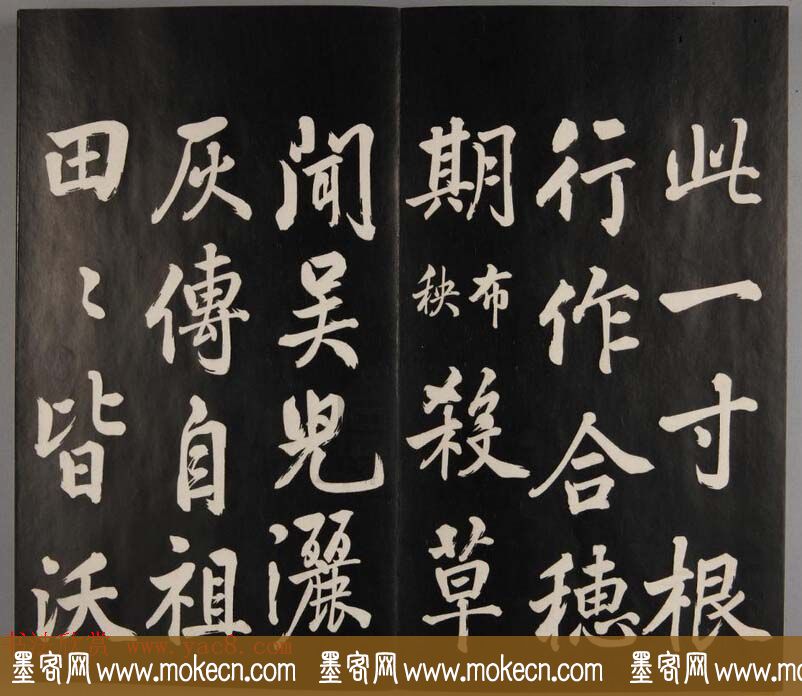 此一寸根
行作合穗
期布秧殺草
聞吴兒灑
灰傳自祖
田〻皆沃
书法欣赏 www.yac8.com
墨客网www.mokecn.com 墨客网www.mokecn.com 墨客网www.mo